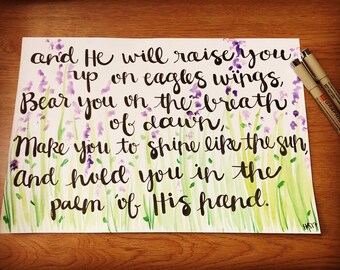 and He will raise you
up on eagles wings,
Bear you on the breath
of dawn,
Make you to shine like the sun,
and hold you in the
palm of His hand.